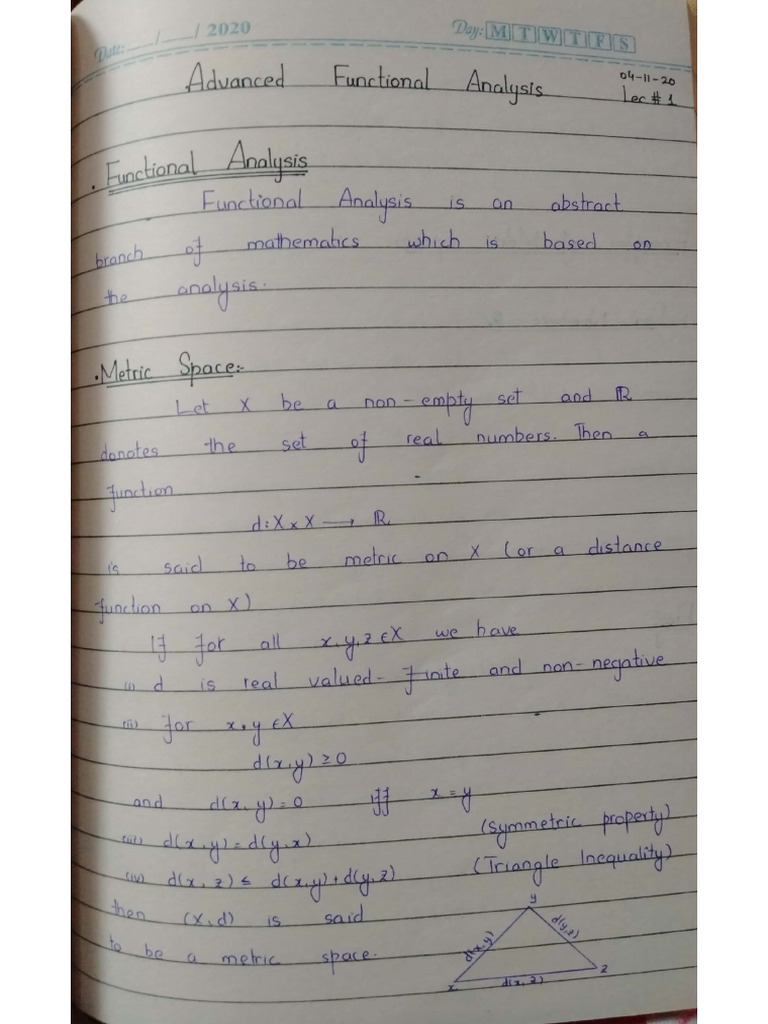 Date: ___/___/ 2020 Day: M T W T F S
Advanced Functional Analysis 04-11-20
Lec # 1
. Functional Analysis
Functional Analysis is an abstract
branch of mathematics which is based on
the analysis.
. Metric Space:-
Let X be a non-empty set and ℝ
donotes the set of real numbers. Then a
function
d: X × X → ℝ
is said to be metric on X (or a distance
function on X)
If for all x, y, z ∈ X we have
(i) d is real valued- finite and non-negative
(ii) for x, y ∈ X
d(x, y) ≥ 0
and d(x, y) = 0 iff x = y
(iii) d(x, y) = d(y, x) (Symmetric property)
(iv) d(x, z) ≤ d(x, y) + d(y, z) (Triangle Inequality)
then (X, d) is said
to be a metric space.
y
d(x, y) d(y, z)
x d(x, z) z